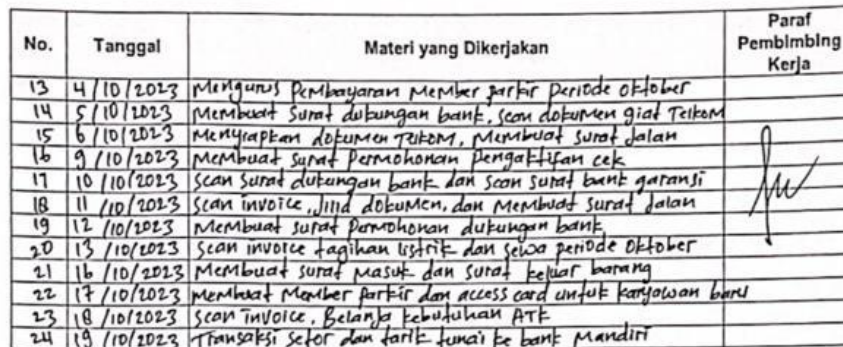 No. Tanggal Materi yang Dikerjakan Paraf Pembimbing Kerja
13 4/10/2023 Mengurus Pembayaran Member parkir periode Oktober
14 5/10/2023 Membuat Surat dukungan bank, scan dokumen giat Telkom
15 6/10/2023 Menyiapkan dokumen Telkom, Membuat surat Jalan
16 9/10/2023 Membuat surat Permohonan Pengaktifan cek
17 10/10/2023 Scan Surat dukungan bank dan Scan surat bank garansi
18 11/10/2023 Scan invoice, Jilid dokumen, dan Membuat surat Jalan
19 12/10/2023 Membuat surat Permohonan dukungan bank
20 13/10/2023 Scan invoice tagihan listrik dan sewa periode Oktober
21 16/10/2023 Membuat surat Masuk dan surat keluar barang
22 17/10/2023 Membuat Member Parkir dan access card untuk karyawan baru
23 18/10/2023 Scan invoice, Belanja kebutuhan ATK
24 19/10/2023 Transaksi setor dan tarik tunai ke bank Mandiri